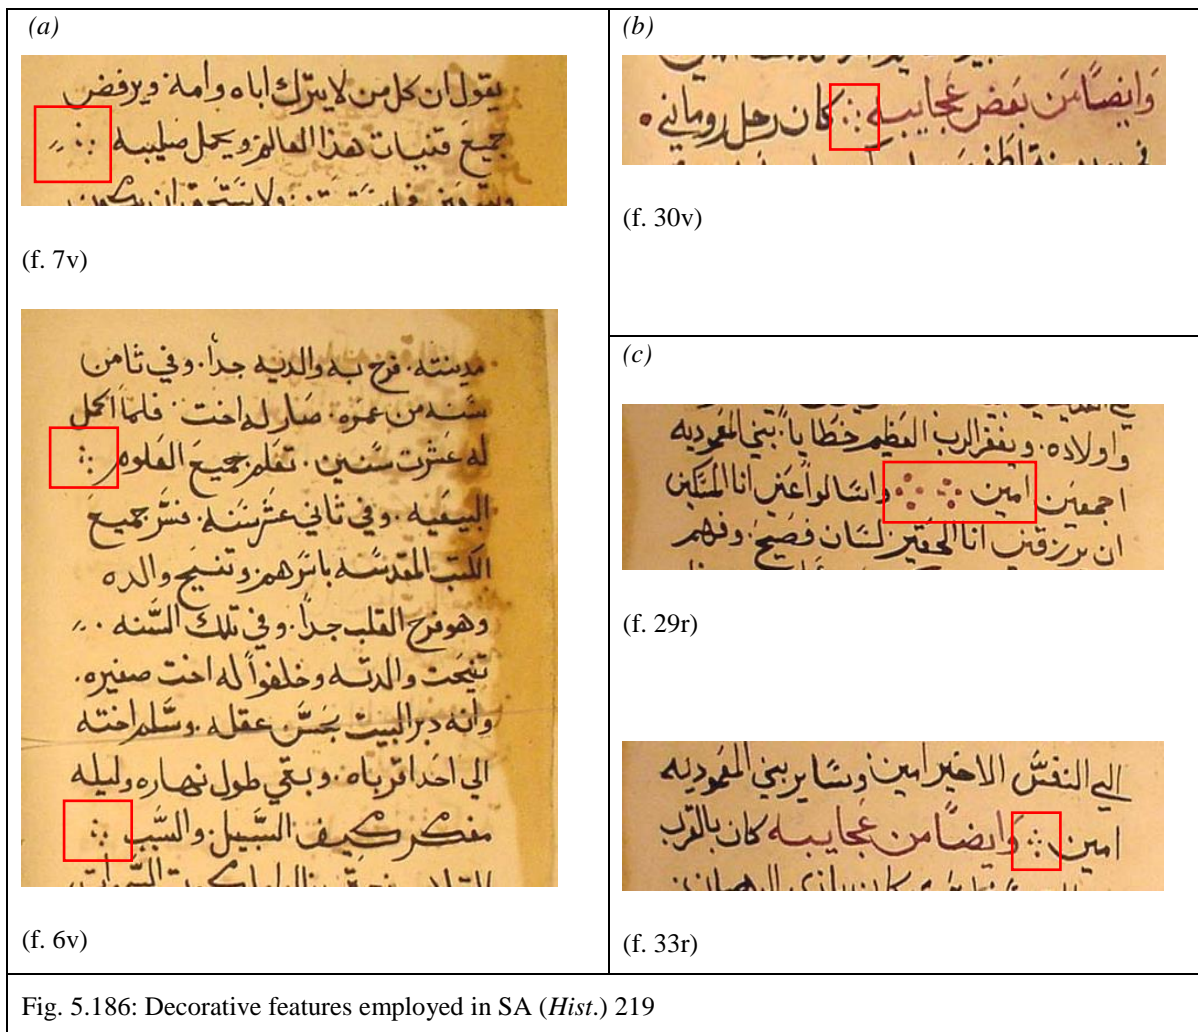 (a)
يقول ان كل من لا يترك اباه وامه ويرفض
جميع قنيات هذا العالم ويحمل صليبه
(f. 7v)
مدينته. فرح به والديه جدا. وفي ثامن
سنه من عمره. صار له اخت. فلما اكمل
له عشرت سنين. تعلم جميع العلوم
البيعيه. وفي ثاني عشر سنه. فسر جميع
الكتب المقدسه باسرهم. وتنيح والده
وهو فرح القلب جدا. وفي تلك السنه
تنيحت والدته وخلفوا له اخت صغيره.
وانه دبر البيت بحسن عقله. وسلم اخته
الي احد اقرباه. وبقي طول نهاره وليله
مفكر كيف السبيل والسبب
(f. 6v)
(b)
وايضا من بعض عجايبه كان رجل روماني
(f. 30v)
(c)
واولاده. ويغفر الرب العظيم خطايا. بني المعموديه
اجمعين امين واسالوا عني انا المسكين
ان يرزقني انا الحقير لسان فصيح. وفهم
(f. 29r)
الي النفس الاخير امين وساير بني المعموديه
امين وايضا من عجايبه كان بالقرب
(f. 33r)
Fig. 5.186: Decorative features employed in SA (Hist.) 219